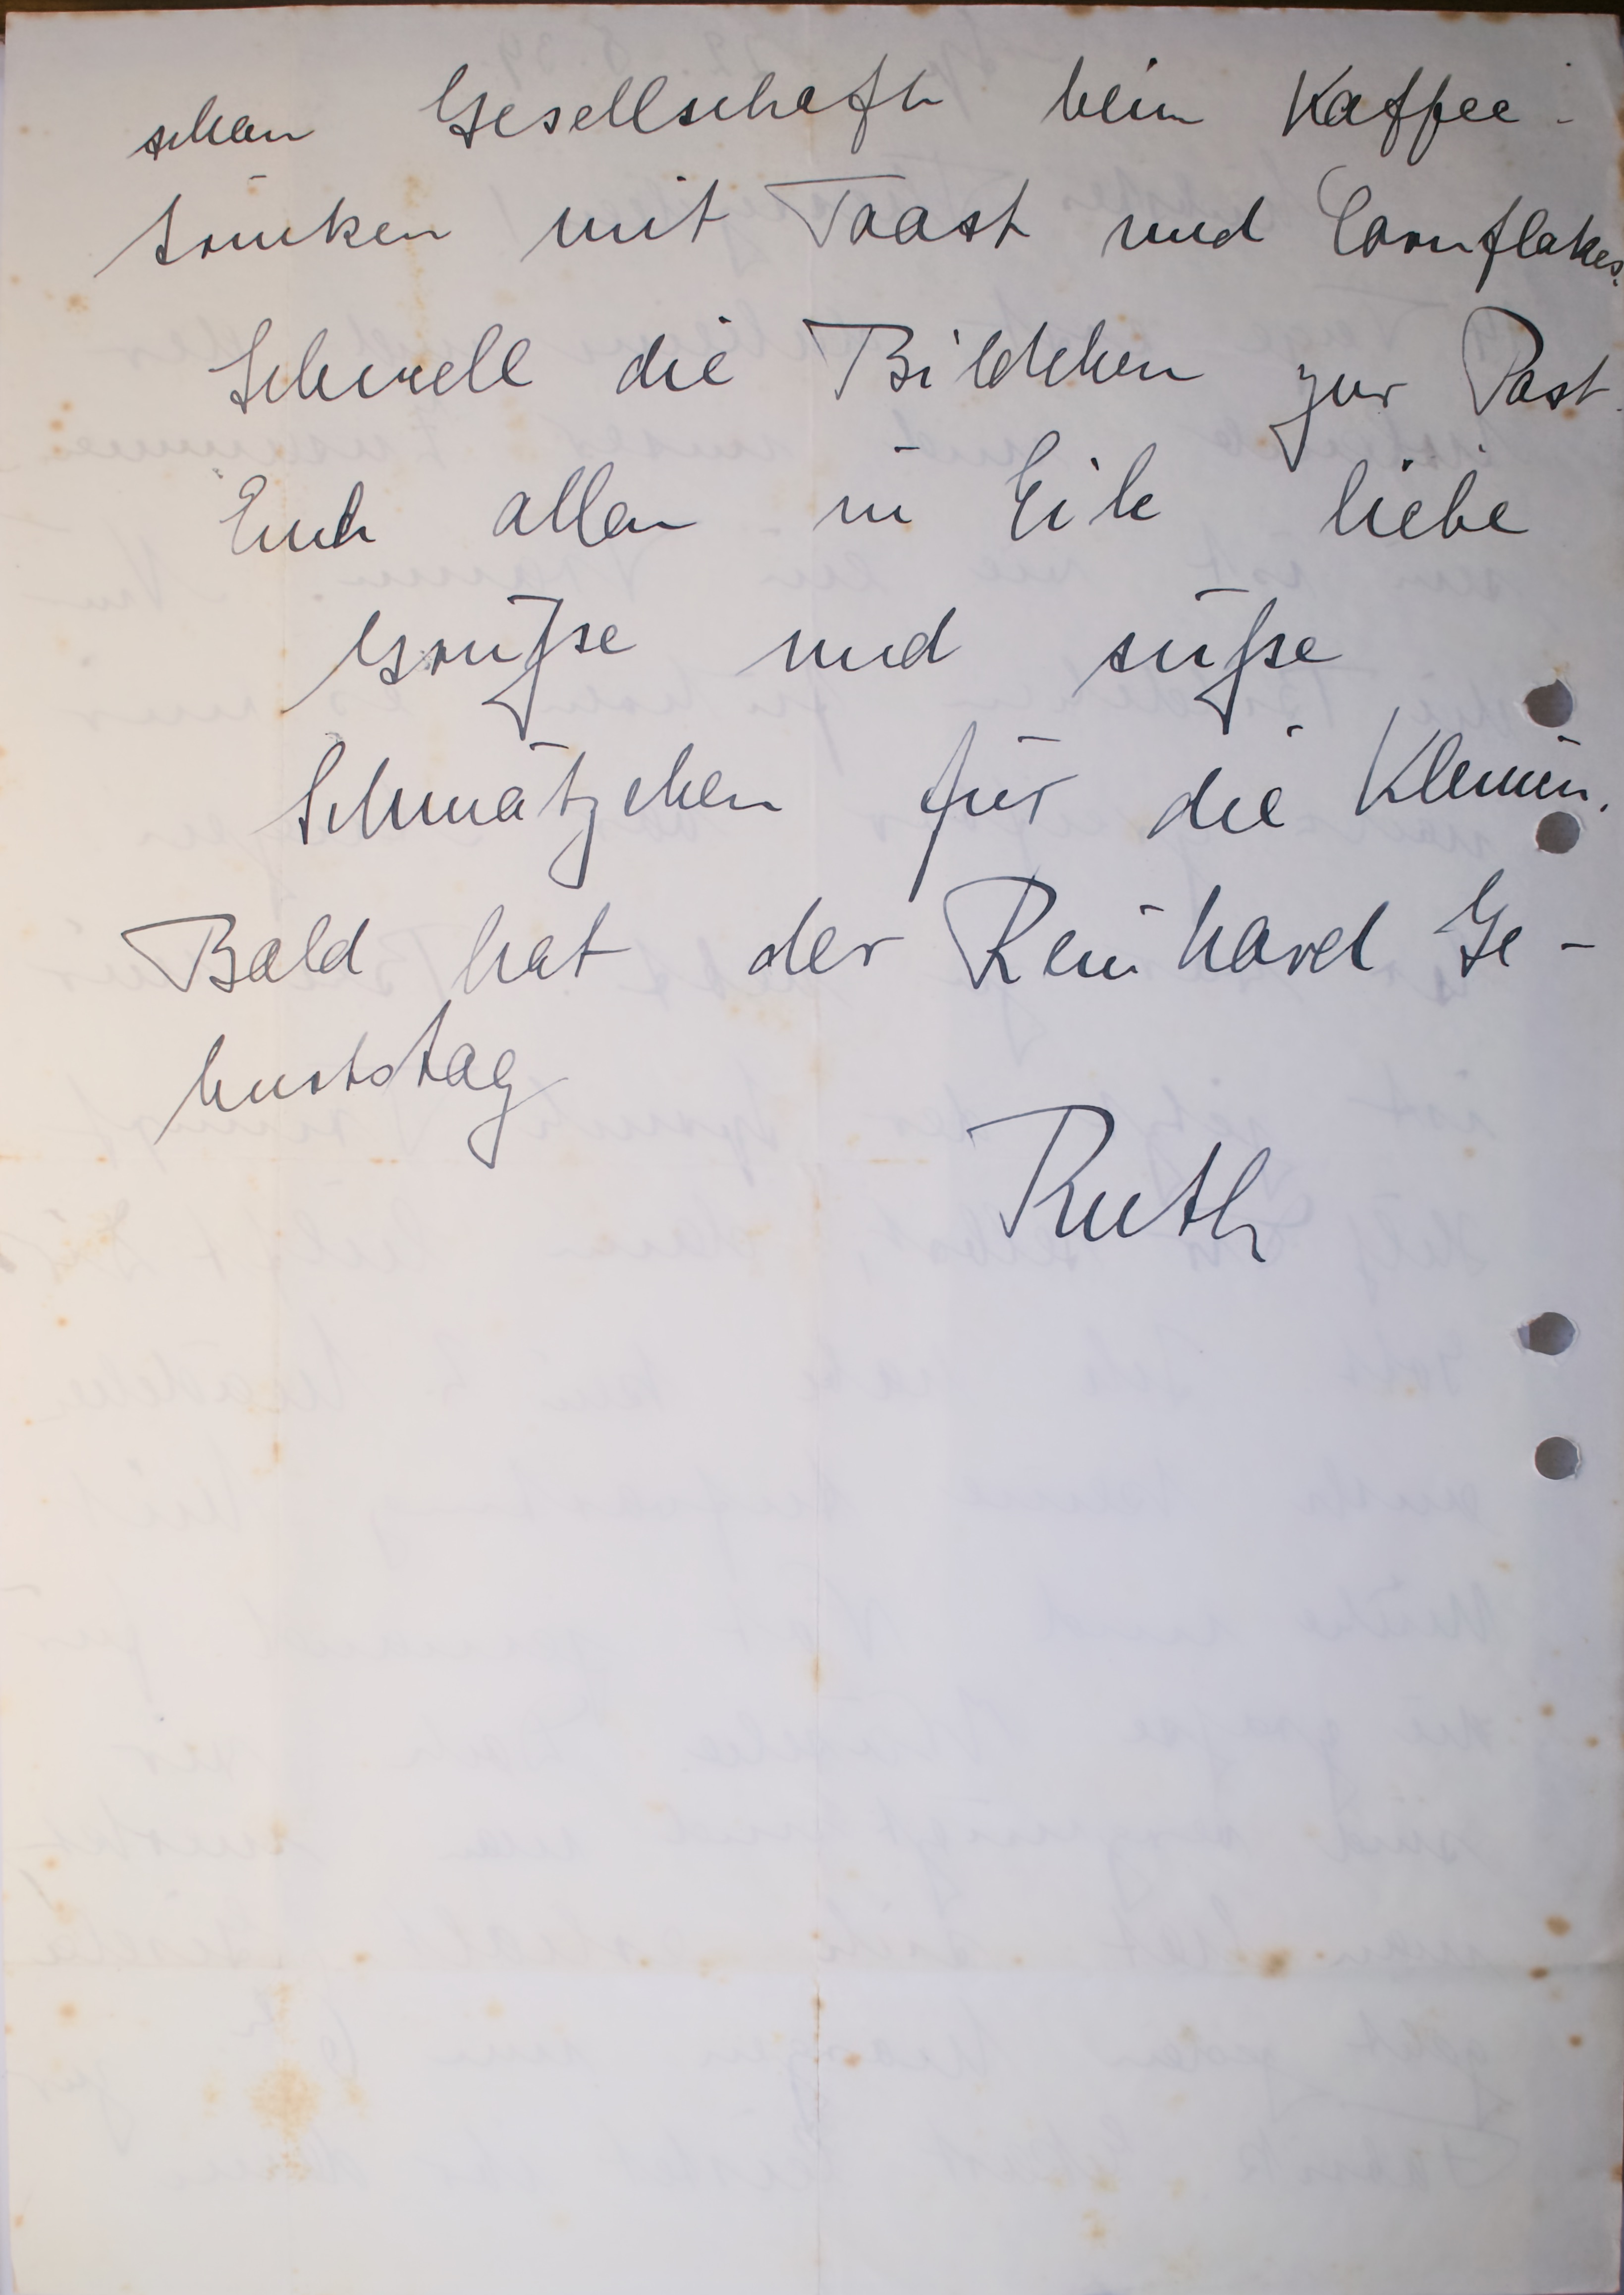 schon Gesellschaft beim Kaffee-
trinken mit Toast und Cornflakes.
Schnell die Bildchen zur Post.
Euch allen in Eile liebe
Grüße und süße
Schmätzchen für die Kleinen.
Bald hat der Reinhard Ge-
burtstag
Ruth